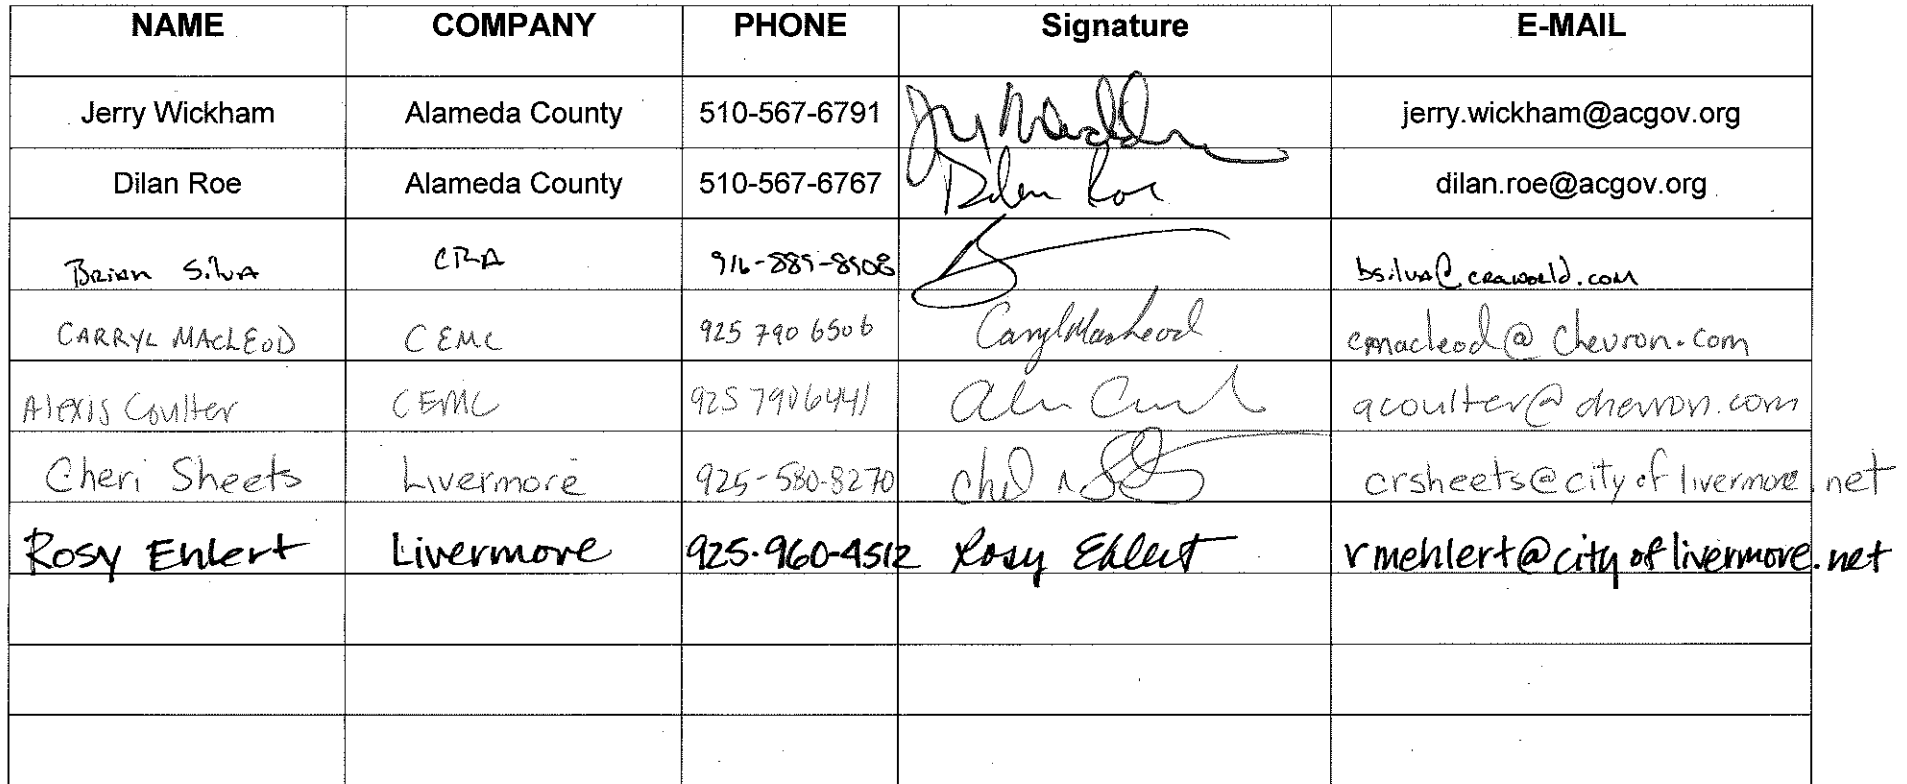 NAME COMPANY PHONE Signature E-MAIL
Jerry Wickham Alameda County 510-567-6791 jerry.wickham@acgov.org
Dilan Roe Alameda County 510-567-6767 Dilan Roe dilan.roe@acgov.org
Brian Silva CRA 916-889-8908 bsilva@craworld.com
CARRYL MACLEOD CEMC 925 790 6506 Carryl MacLeod cmacleod@chevron.com
Alexis Coulter CEMC 925 790 6441 acoulter@chevron.com
Cheri Sheets Livermore 925-580-8270 crsheets@cityoflivermore.net
Rosy Ehlert Livermore 925-960-4512 Rosy Ehlert rmehlert@cityoflivermore.net